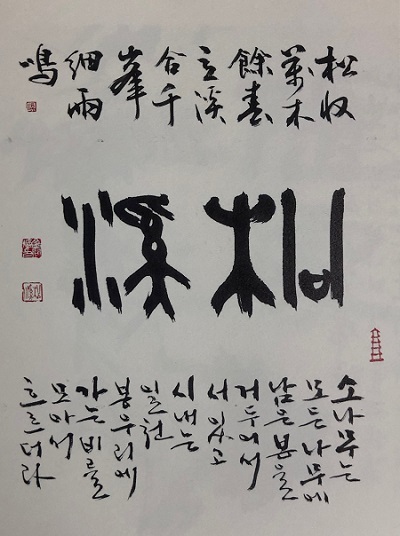 松收
萬木
餘春
立溪
合千
峯
細雨
鳴
松溪
소나무는
모든나무에
남은봄을
거두어서
서있고
시내는
일천
봉우리에
가는비를
모아서
흐르더라